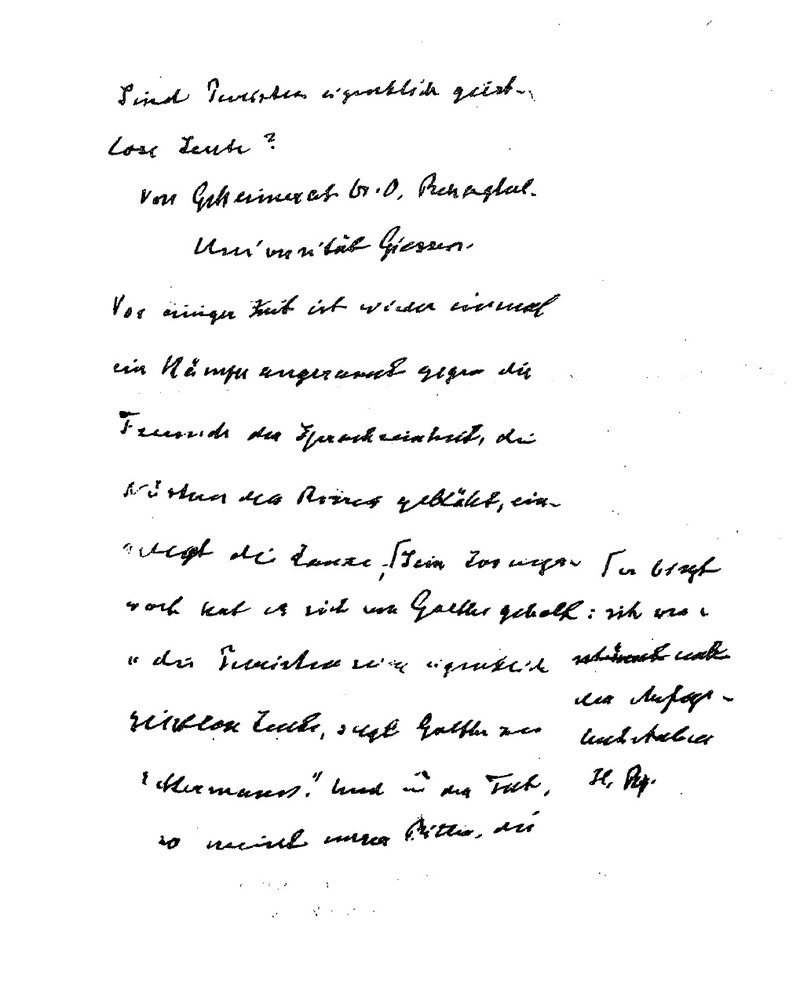 Sind Puristen eigentlich geist-
lose Leute?
Von Geheimerat Dr. O. Behaghel.
Universität Giessen.
Vor einiger Zeit ist wieder einmal
ein Kämpe angerannt gegen die
Freunde der Sprachreinheit, die
Nüstern des Rosses gebläht, ein-
gelegt die Lanze,
noch hat er sich von Goethe geholt:
"die Puristen seien eigentlich
geistlose Leute, sagt Goethe zu
Eckermann." Und in der Tat,
so meint unser Ritter, die
Er birgt
sich
den Anfangs-
buchstaben